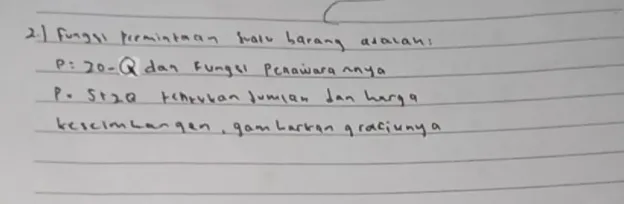 2.) Fungsi permintaan suatu barang adalah:
P: 20-Q dan Fungsi Penawarannya
P = 5+2Q tentukan Jumlah dan harga
keseimbangan, gambarkan grafiknya